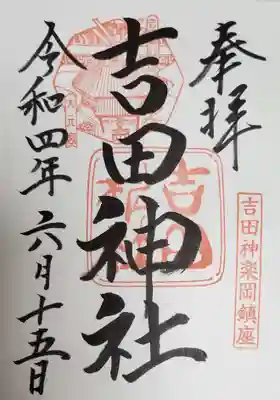 奉拝
吉田神楽岡鎮座
吉田神社
令和四年六月十五日